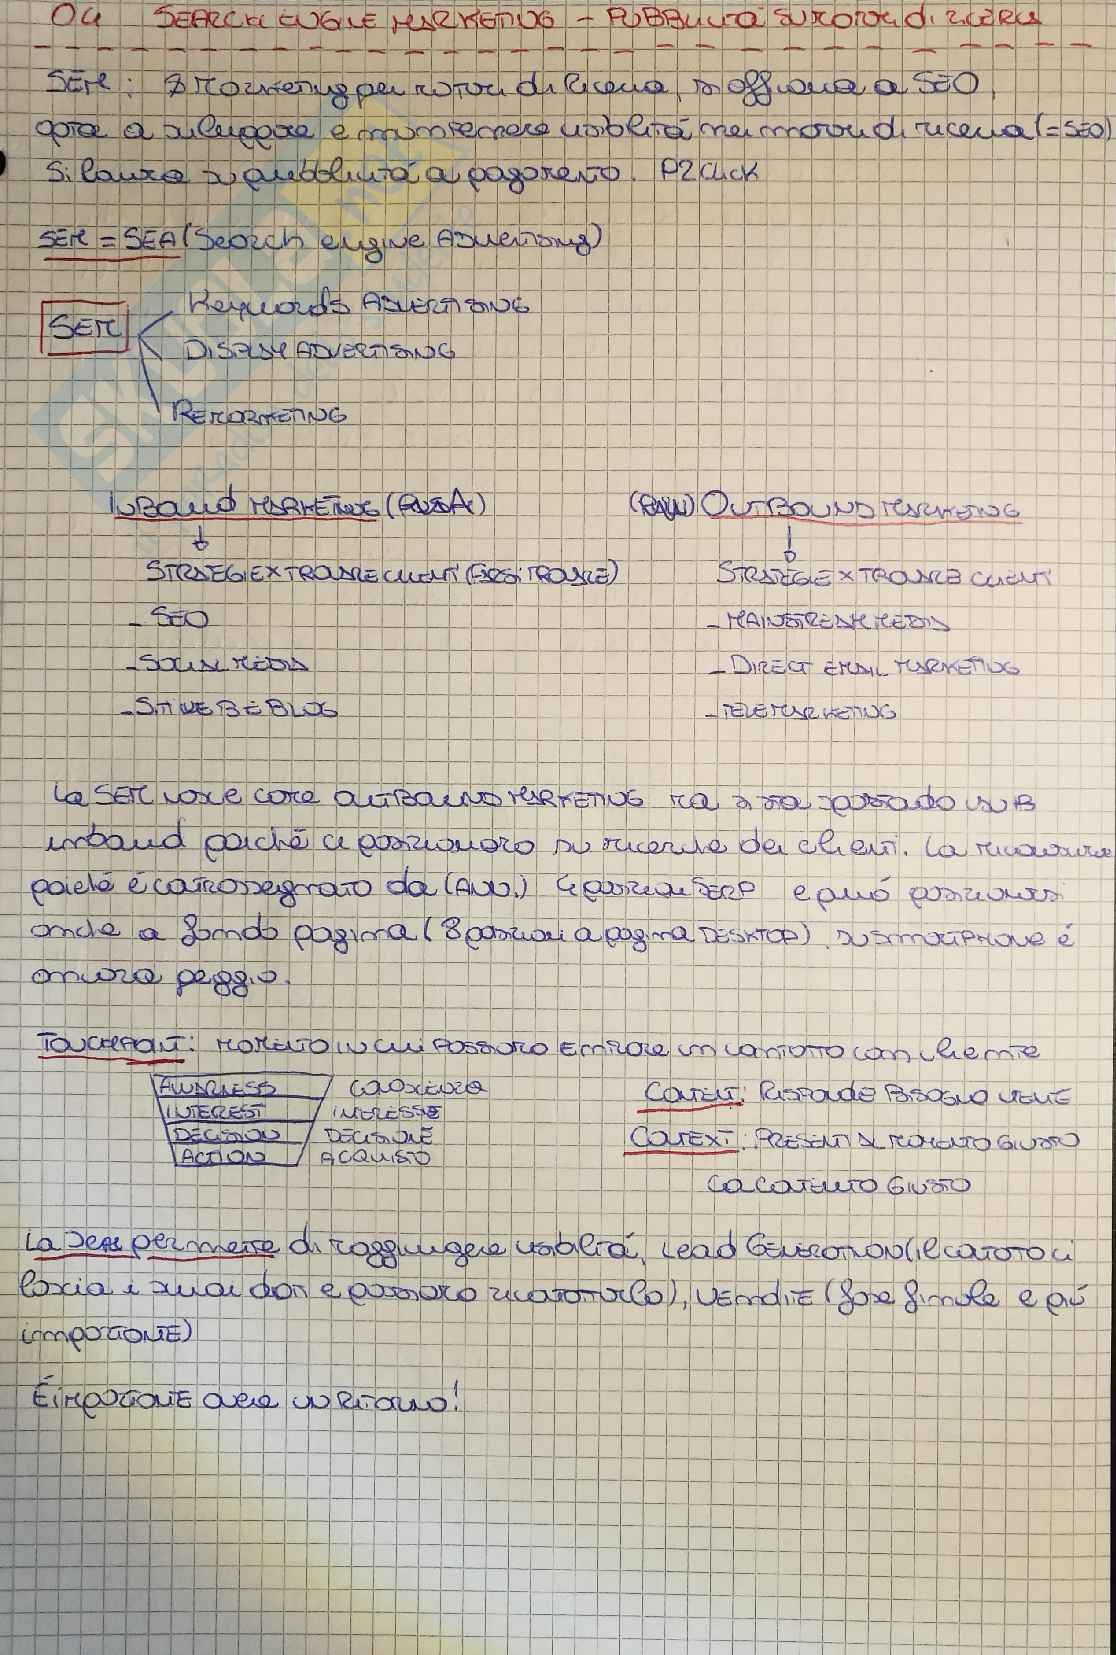 04 SEARCH ENGINE MARKETING - PUBBLICITÀ SU MOTORI di RICERCA
SEM: Marketing per motori di ricerca, si affianca a SEO,
a sviluppare e mantenere visibilità nei motori di ricerca (=SEO)
Si lavora su pubblicità a pagamento. P2Click
SEM = SEA (Search engine Advertising)
SEM
Keywords ADVERTISING
DISPLAY ADVERTISING
REMARKETING
INBOUND MARKETING (PULL)
(PUSH) OUTBOUND MARKETING
STRATEGIE X TROVARE CLIENTI
STRATEGIE X TROVARE CLIENTI
- SEO
- MAINSTREAM MEDIA
- SOCIAL MEDIA
- DIRECT EMAIL MARKETING
- SITI WEB E BLOG
- TELEMARKETING
La SEM nasce come OUTBOUND MARKETING ma si sta spostando su
inbound poiché ci posizioniamo su ricerche dei clienti. La riconosciamo
poiché è contrassegnato da (Ann.) 4 posizioni SERP e può posizionarsi
anche a fondo pagina (8 posizioni a pagina DESKTOP), su smartphone è
ancora peggio.
TOUCHPOINT: MOMENTO IN CUI POSSIAMO ENTRARE in contatto con cliente
AWARNESS CONOSCENZA
INTEREST INTERESSE
DECISION DECISIONE
ACTION ACQUISTO
CONTENT: RISPONDE BISOGNO UTENTE
CONTEXT: PRESENTI AL MOMENTO GIUSTO
CON CONTENUTO GIUSTO
La SEM permette di raggiungere visibilità, Lead GENERATION (il contatto ci
lascia i suoi dati e possiamo ricontattarlo), VENDITE (fase finale e più
importante)
È IMPORTANTE avere un RITORNO!